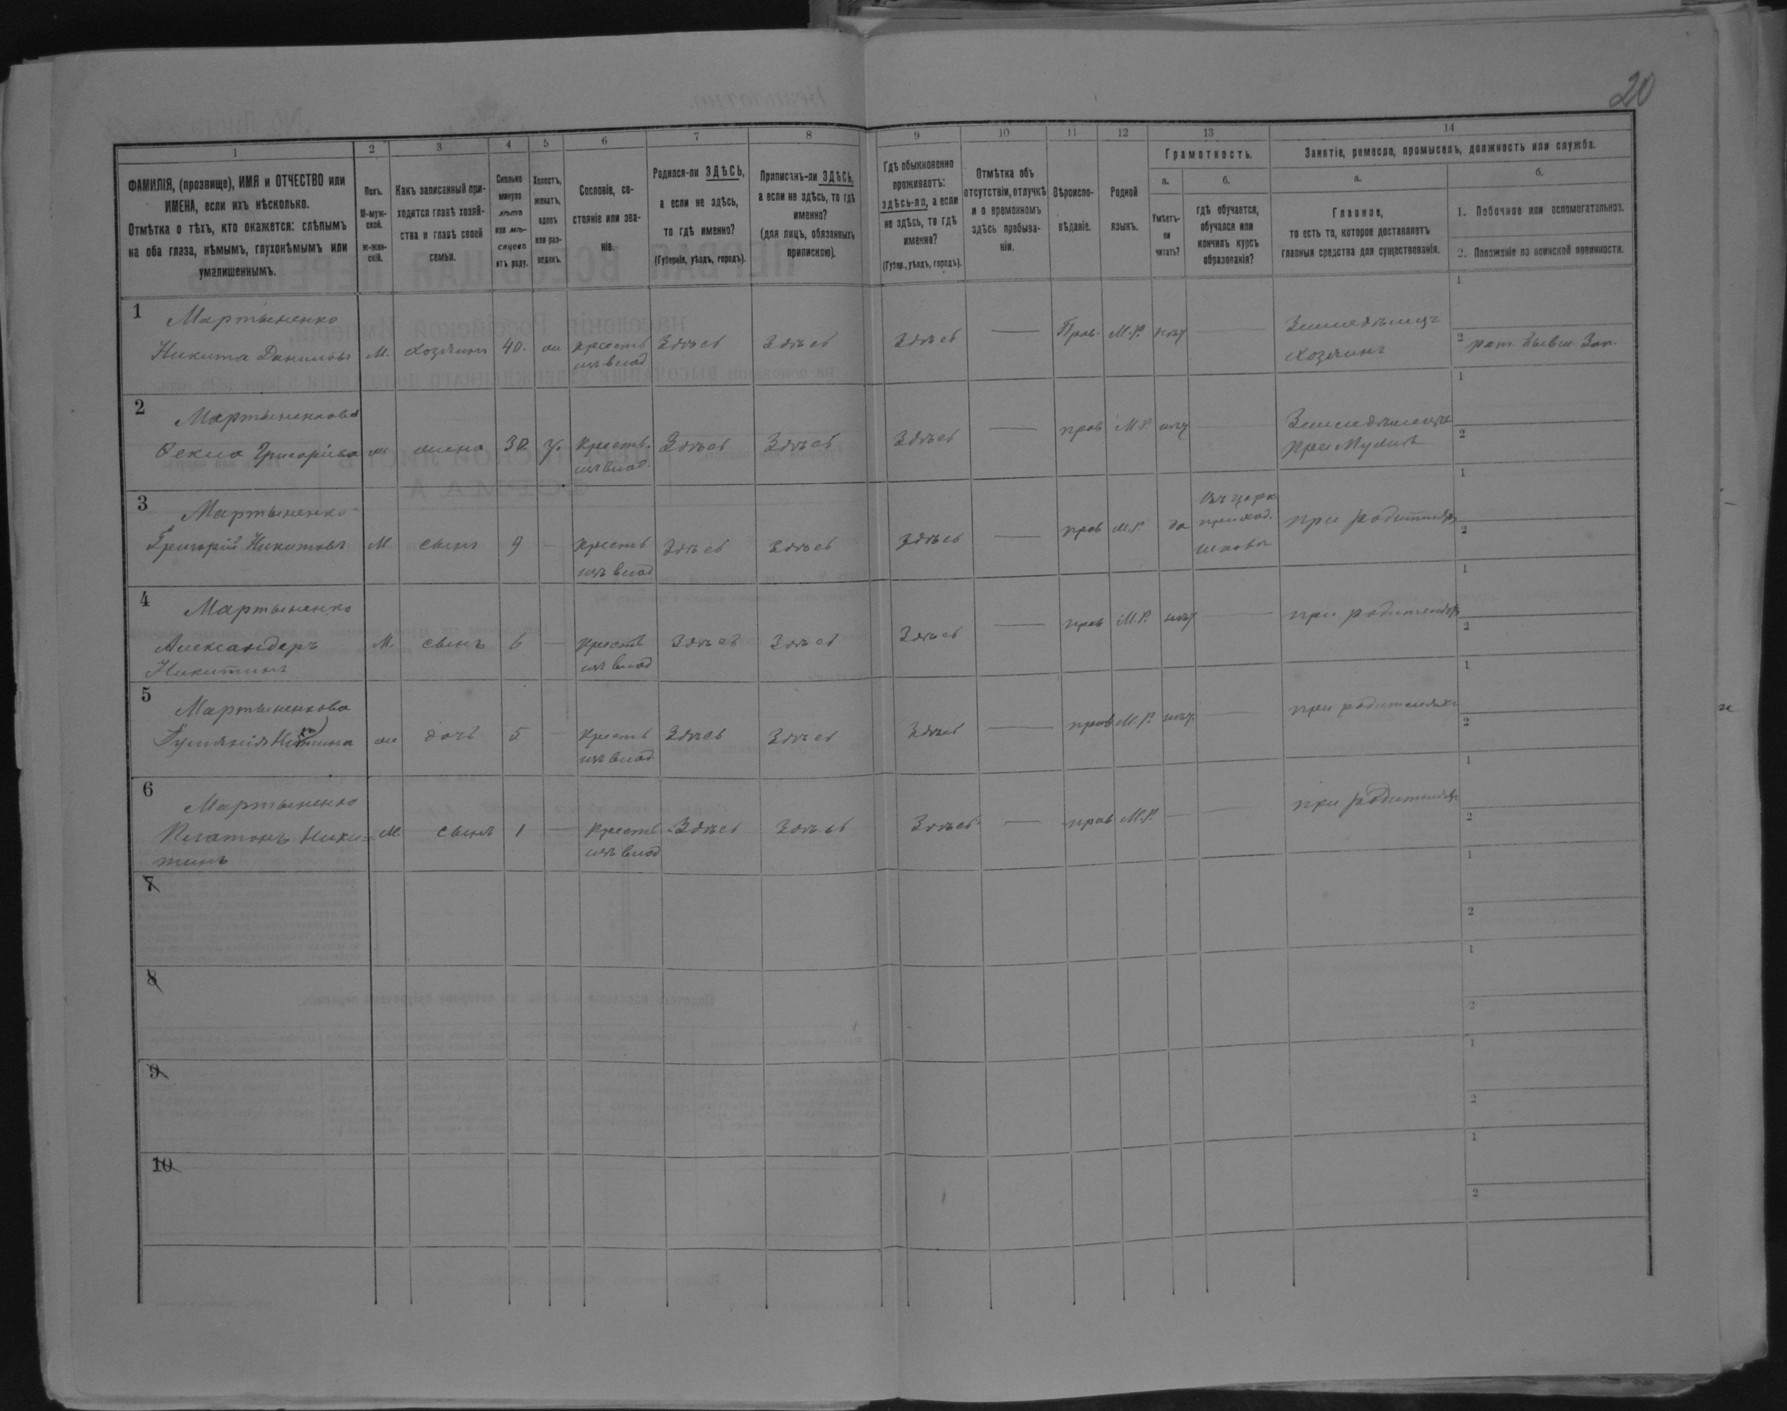 20
1 2 3 4 5 6 7 8 9 10 11 12 13 14
ФАМИЛІЯ, (прозвище), ИМЯ и ОТЧЕСТВО или
ИМЕНА, если ихъ нѣсколько.
Отмѣтка о тѣхъ, кто окажется: слѣпымъ
на оба глаза, нѣмымъ, глухонѣмымъ или
умалишеннымъ.
Полъ.
М-муж-
ской.
Ж-жен-
скій.
Какъ записанный при-
ходится главѣ хозяй-
ства и главѣ своей
семьи.
Сколько
минуло
лѣтъ
или мѣ-
сяцевъ
отъ роду.
Холостъ,
женатъ,
вдовъ
или раз-
веденъ.
Сословіе, со-
стояніе или зва-
ніе.
Родился-ли ЗДѢСЬ,
а если не здѣсь,
то гдѣ именно?
(Губернія, уѣздъ, городъ).
Приписанъ-ли ЗДѢСЬ,
а если не здѣсь, то гдѣ
именно?
(для лицъ, обязанныхъ
припискою).
Гдѣ обыкновенно
проживаетъ:
здѣсь-ли, а если
не здѣсь, то гдѣ
именно?
(Губер., уѣздъ, городъ).
Отмѣтка объ
отсутствіи, отлучкѣ
и о временномъ
здѣсь пребыва-
ніи.
Вѣроиспо-
вѣданіе.
Родной
языкъ.
Грамотность.
а.
Умѣетъ-
ли
читать?
б.
гдѣ обучается,
обучался или
кончилъ курсъ
образованія?
Занятіе, ремесло, промыселъ, должность или служба.
а.
Главное,
то есть то, которое доставляетъ
главныя средства для существованія.
б.
1. Побочное или вспомогательное.
2. Положеніе по воинской повинности.
1 Мартыненко
Никита Даниловъ М. хозяинъ 40. ж Крестъ Здѣсь Здѣсь Здѣсь — Прав. М.Р. нѣт — Земледѣлецъ
изъ влад хозяинъ 2 рат.
2 Мартыненкова
Фекла Григорьева ж жена 30 Крестъ. Здѣсь Здѣсь Здѣсь — прав М.Р. нѣт
изъ влад. при Мужѣ
3 Мартыненко
Григорій Никитовъ М сынъ 9 — Крестъ Здѣсь Здѣсь Здѣсь — прав М.Р. да при родителях
изъ влад приход.
школѣ
4 Мартыненко
Александеръ М. сынъ 6 — Крестъ Здѣсь Здѣсь Здѣсь — прав М.Р. нѣт — при родителях
Никитинъ изъ влад
5 Мартыненкова
ж дочь 5 — Крестъ Здѣсь Здѣсь Здѣсь — прав М.Р. нѣт — при родителяхъ
изъ влад
6 Мартыненко
Платонъ Ники- М. сынъ 1 — Крестъ Здѣсь Здѣсь Здѣсь — прав М.Р. — — при родителях
тинъ изъ влад
7
8
9
10